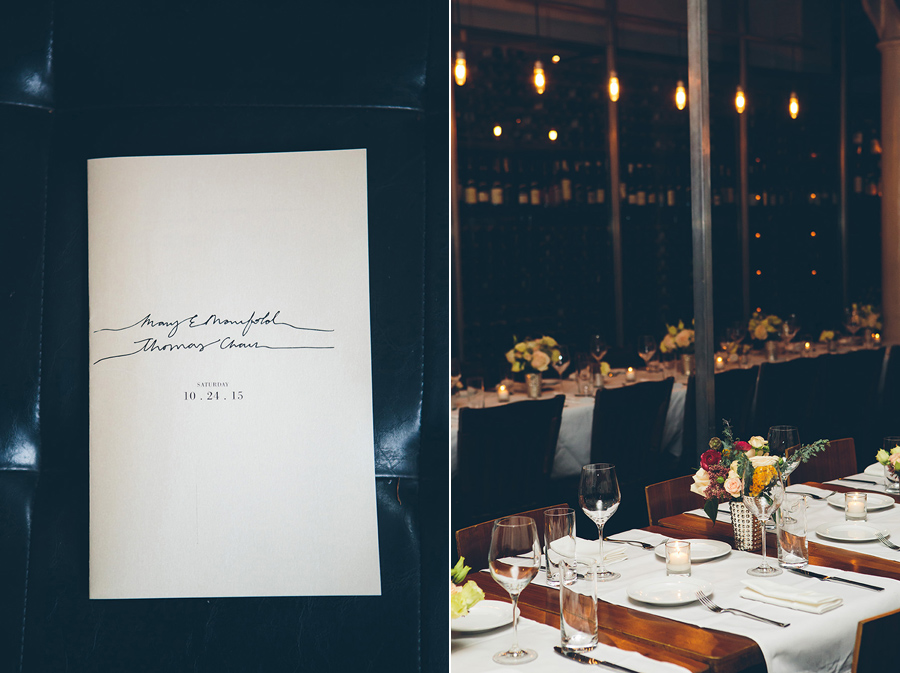 Mary E Manifold
Thomas Chair
SATURDAY
10 . 24 . 15